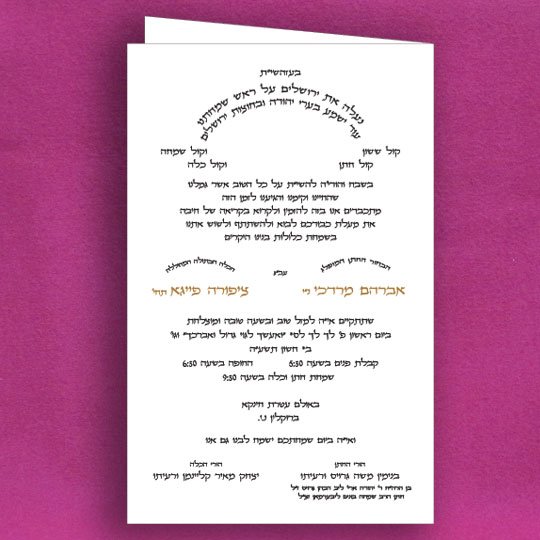 בעזהשי"ת
נעלה את ירושלים על ראש שמחתנו
עוד ישמע בערי יהודה ובחוצות ירושלים
קול ששון וקול שמחה
קול חתן וקול כלה
בשבח והודיה להשי"ת על כל הטוב אשר גמלנו
שהחיינו וקימנו והגיענו לזמן הזה
מתכבדים אנו בזה להזמין ולקרוא בקריאה של חיבה
את מעלת כבודכם לבוא ולהשתתף ולשוש אתנו
בשמחת כלולות בנינו היקרים
הבחור החתן המופלג עב"ג הכלה הבתולה המהוללה
אברהם מרדכי ני' ציפורה פייגא תחי'
שתתקיים אי"ה למזל טוב ובשעה טובה ומוצלחת
ביום ראשון פ' לך לך לסי' "ואעשך לגוי גדול ואברכך" וגו'
ב' חשון תשע"ה
קבלת פנים בשעה 5:30 החופה בשעה 6:30
שמחת חתן וכלה בשעה 9:30
באולם עטרת חינקא
ברוקלין נ.י.
ואי"ה ביום שמחתכם ישמח לבנו גם אנו
הורי החתן הורי הכלה
בנימין משה גרויס ורעיתו יצחק מאיר קליינמן ורעיתו
בן הרה"ח ר' יהודה ארי' ליב הכהן גרויס ז"ל
חתן הרב שמחה בונם ליבערמאן שליט"א